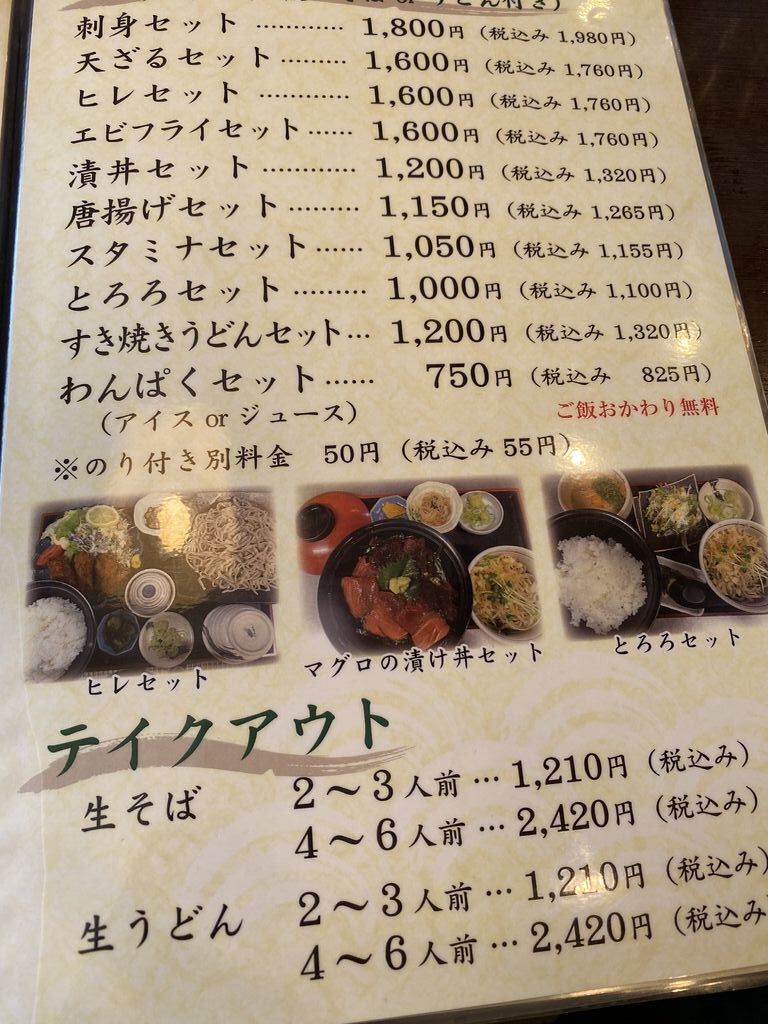 そば or うどん付き）
刺身セット ………… 1,800円（税込み 1,980円）
天ざるセット ……… 1,600円（税込み 1,760円）
ヒレセット ………… 1,600円（税込み 1,760円）
エビフライセット…… 1,600円（税込み 1,760円）
漬丼セット ………… 1,200円（税込み 1,320円）
唐揚げセット ……… 1,150円（税込み 1,265円）
スタミナセット…… 1,050円（税込み 1,155円）
とろろセット ……… 1,000円（税込み 1,100円）
すき焼きうどんセット… 1,200円（税込み 1,320円）
わんぱくセット…… 750円（税込み 825円）
（アイス or ジュース）
ご飯おかわり無料
※のり付き別料金 50円（税込み 55円）
ヒレセット
マグロの漬け丼セット
とろろセット
テイクアウト
生そば 2～3人前 … 1,210円（税込み）
4～6人前 … 2,420円（税込み）
生うどん 2～3人前 … 1,210円（税込み）
4～6人前 … 2,420円（税込み